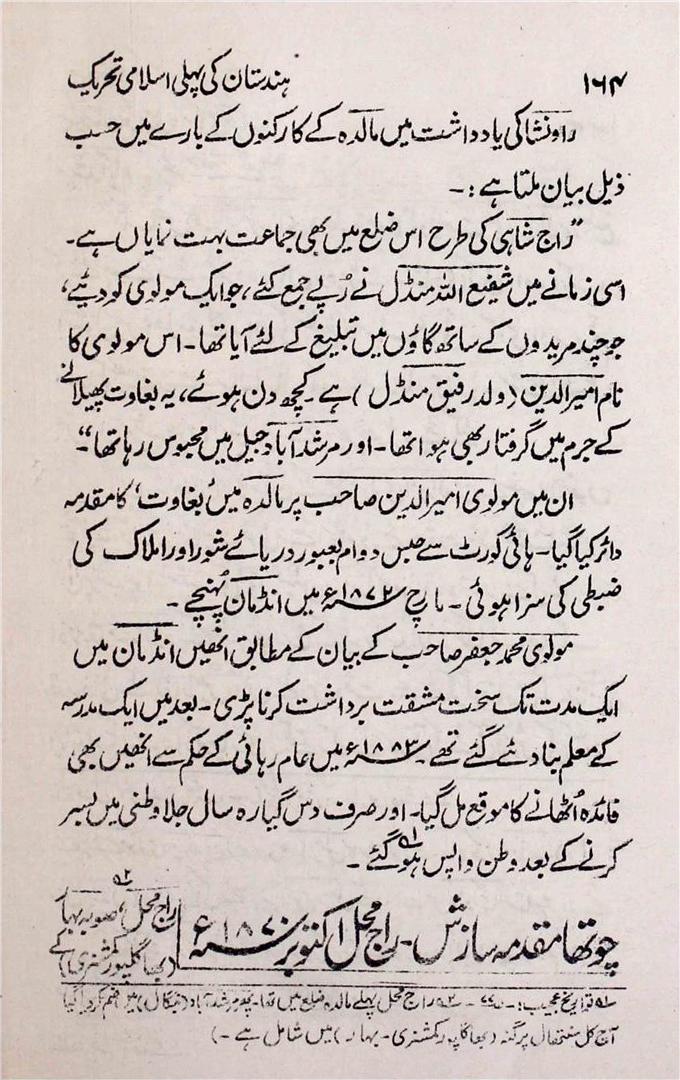 ۱۶۴ ہندستان کی پہلی اسلامی تحریک
راونشا کی یادداشت میں مالدہ کے کارکنوں کے بارے میں حسب
ذیل بیان ملتا ہے :۔
”راج شاہی کی طرح اس ضلع میں بھی جماعت بہت نمایاں ہے۔
اسی زمانے میں شفیع اللہ منڈل نے رُپے جمع کئے، جو ایک مولوی کو دیئے،
جو چند مریدوں کے ساتھ گاؤں میں تبلیغ کے لئے آیا تھا۔ اس مولوی کا
نام امیرالدین (ولد رفیق منڈل) ہے۔ کچھ دن ہوئے، یہ بغاوت پھیلانے
کے جرم میں گرفتار بھی ہوا تھا۔ اور مرشدآباد جیل میں محبوس رہا تھا“۔
ان میں مولوی امیرالدین صاحب پر مالدہ میں ’بغاوت‘ کا مقدمہ
دائر کیا گیا۔ ہائی کورٹ سے حبس دوام بعبور دریائے شور اور املاک کی
ضبطی کی سزا ہوئی ۔ مارچ ۱۸۷۲ء میں انڈمان پُہنچے ۔
مولوی محمد جعفر صاحب کے بیان کے مطابق انھیں انڈمان میں
ایک مدت تک سخت مشقت برداشت کرنا پڑی۔ بعد میں ایک مدرسہ
کے معلم بنا دئے گئے تھے۔ ۱۸۸۳ء میں عام رہائی کے حکم سے انھیں بھی
فائدہ اُٹھانے کا موقع مل گیا۔ اور صرف دس گیارہ سال جلا وطنی میں بسر
کرنے کے بعد وطن واپس ہو گئے ۔ ۵۱
چوتھا مقدمہ سازش۔ راج محل اکتوبر ۱۸۷۰ء راج محل، ۵۲ صوبہ بہار
(بھاگلپور کمشنری) کے
۵۱ تواریخ عجیب :۔ ۷۷ ۔ ۵۲ راج محل پہلے مالدہ ضلع میں تھا۔ پھر مرشدآباد (بنگال) میں ضم کر دیا گیا
آج کل سنتھال پرگنہ (بھاگلپور کمشنری۔ بہار) میں شامل ہے ۔)